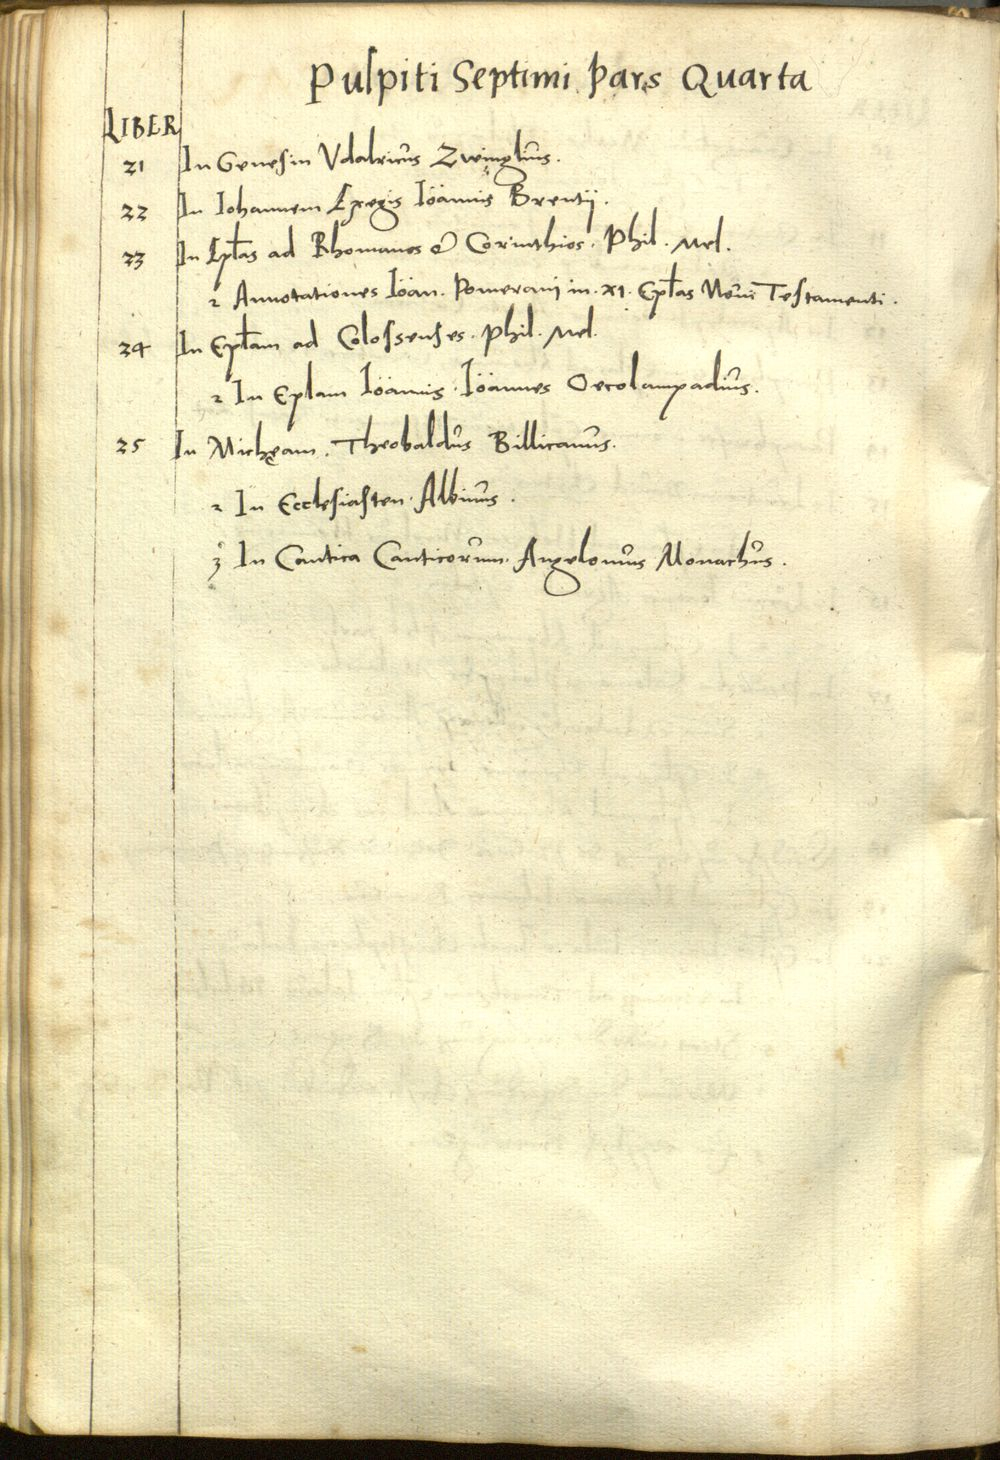 Pulpiti Septimi Pars Quarta
LIBER
21 In Genesin Vdalricus Zwinglius.
22 In Iohannem Exegis Iöannis Brentij.
23 In Epl̄as ad Rhomanos & Corinthios. Phil. Mel.
2 Annotationes Iöan. Pomerani in. XI. Epl̄as Noui Testamenti.
24 In Epl̄am ad Colossenses. Phil. Mel.
2 In Eplam Iöannis. Iöannes Oecolampadius.
25 In Michęam. Theobaldus Billicanus.
2 In Ecclesiasten. Albinus.
3 In Cantica Canticorum. Angelomus Monachus.